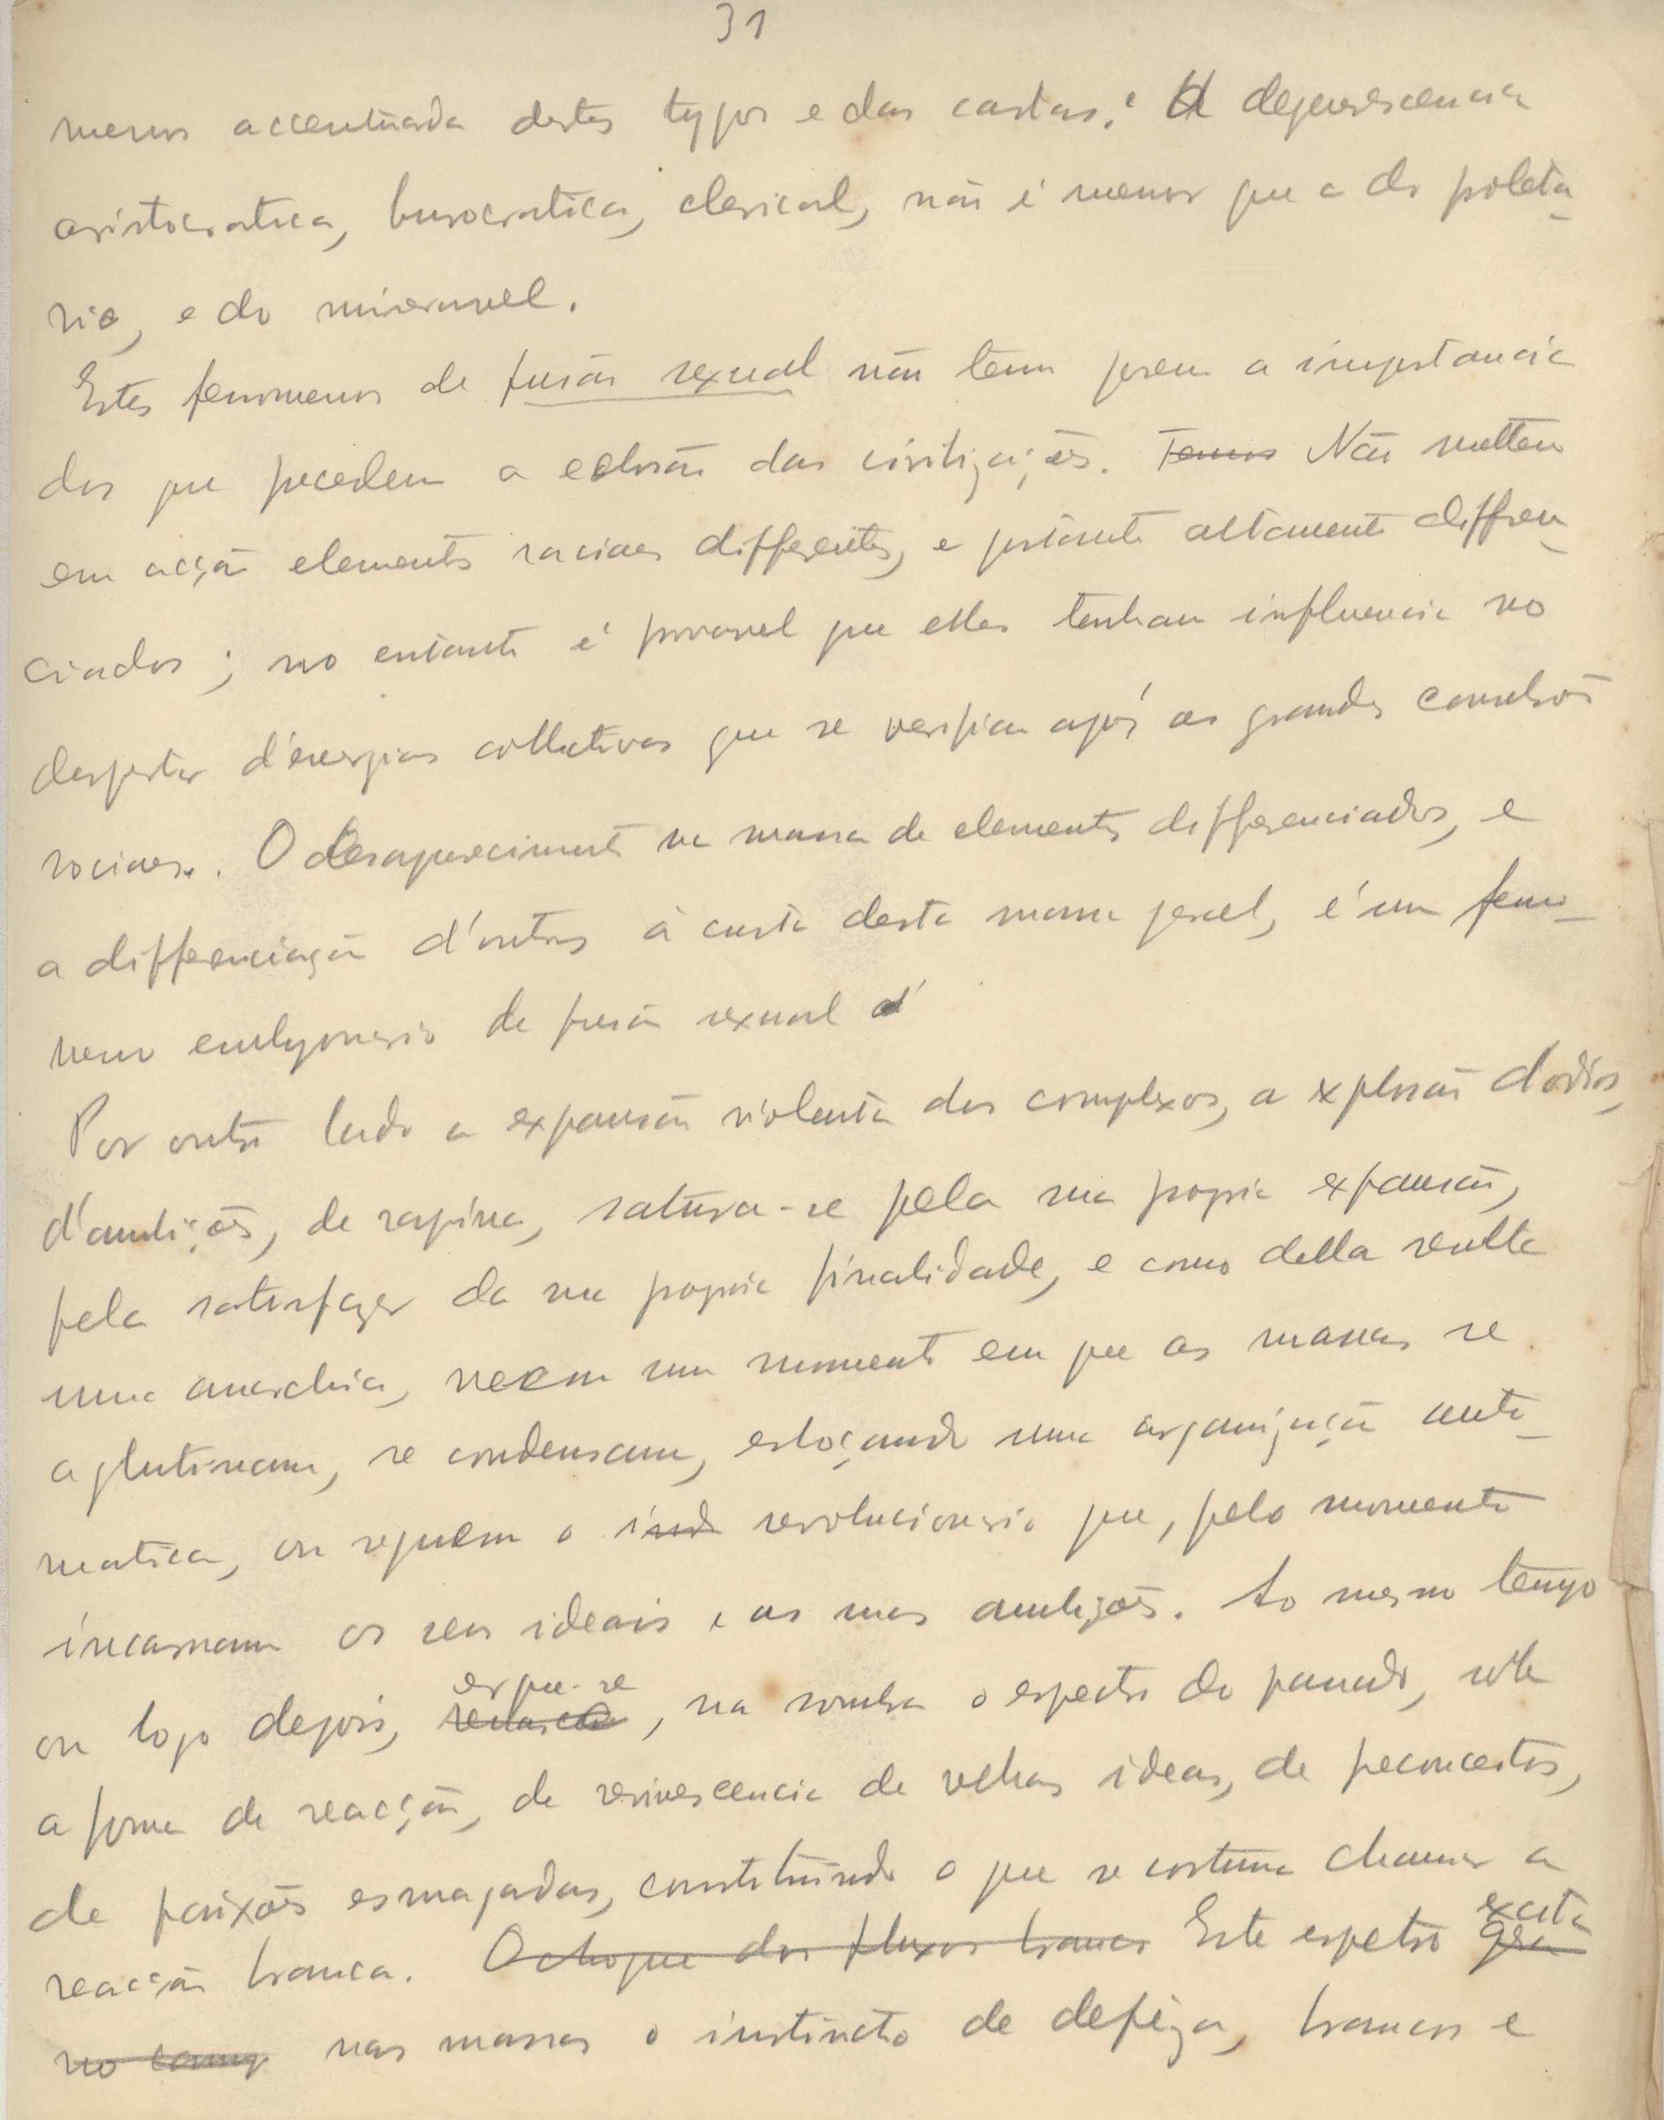 31
menos accentuada destes typos e das castas. A degenerescencia
aristocratica, burocratica, clerical, não é menor que a do proleta_
rio, e do miseravel.
Estes fenomenos de fusão sexual não tem porem a importancia
dos que precedem a eclosão das civilizações. Temos Não mettem
em acção elementos raciaes differentes, e portanto altamente differen_
ciados; no entanto é provavel que elles tenham influencia no
despertar d'energias collectivas que se verifica após as grandes convulsões
sociaes. O desaparecimento na massa de elementos differenciados, e
a differenciação d'outros à custa desta massa geral, é um feno_
meno embryonario de fusão sexual d'
Por outro lado a expansão violenta dos complexos, a explosão d'odios,
d'ambições, de rapina, satura-se pela sua propria expansão,
pela satisfação da sua propria finalidade, e como della resulta
uma anarchia, veem um momento em que as massas se
aglutinam, se condensam, esboçando uma organização auto_
matica, ou seguem o ind revolucionario que, pelo momento
incarnam os seus ideais e as suas ambições. Ao mesmo tempo
ou logo depois, ergue-se, na sombra o espectro do passado, sob
a forma de reacção, de revivescencia de velhas ideas, de preconceitos,
de paixões esmagadas, constituindo o que se costuma chamar a
reacção branca. O choque dos fluxos brancos Este espetro excita gera
no campo nas massas o instincto de defeza, brancos e